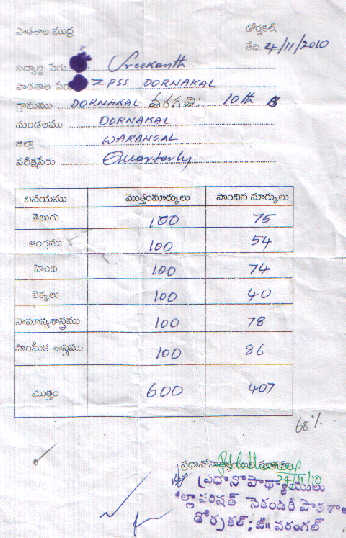 పాఠశాల ముద్ర
డోర్నకల్,
తేది: 24/11/2010
విద్యార్థి పేరు Sreekanth
పాఠశాల పేరు ZPSS DORNAKAL
గ్రామము DORNAKAL తరగతి: 10th B
మండలము DORNAKAL
జిల్లా WARANGAL
పరీక్షపేరు Quarterly
విషయము మొత్తంమార్కులు పొందిన మార్కులు
తెలుగు 100 75
ఆంగ్లము 100 54
హింది 100 74
లెక్కలు 100 40
సామాన్యశాస్త్రము 100 78
సాంఘీక శాస్త్రము 100 86
మొత్తం 600 407
68%
ప్రధానోపాధ్యాయులు
జిల్లా పరిషత్ సెకండరీ పాఠశాల
డోర్నకల్; జి॥ వరంగల్